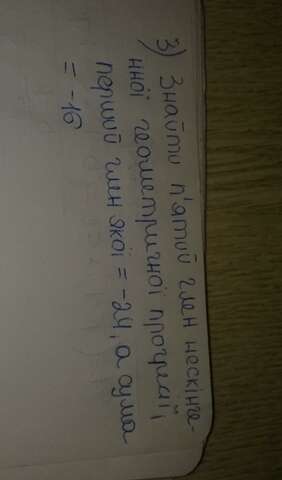 3) Знайти п'ятий член нескінче-
нної геометричної прогресії,
перший член якої = -24, а сума
= -16